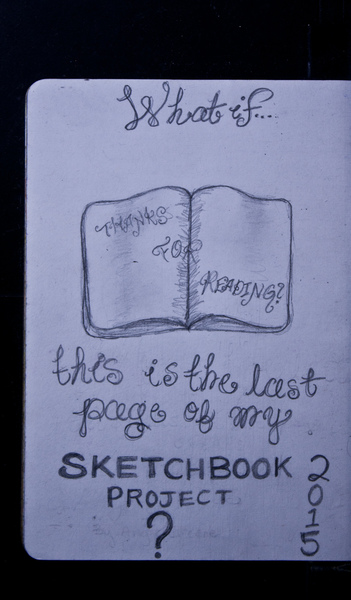 What if....
THANKS
FOR
READING?
this is the last
page of my
SKETCHBOOK
PROJECT
?
2
0
1
5